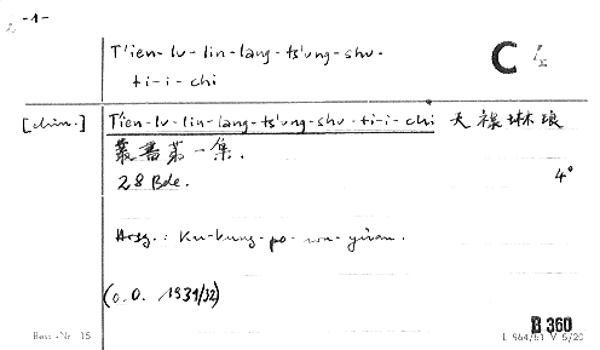 -1-
T'ien-lu-lin-lang-ts'ung-shu-
ti-i-chi
C
[chin.] T'ien-lu-lin-lang-ts'ung-shu-ti-i-chi 天祿琳琅
叢書第一集.
28 Bde. 4°
Hrsg.: Ku-kung-po-wu-yüan.
(o.O. 1931/32)
B 360
15 L 964/61 V 5/20